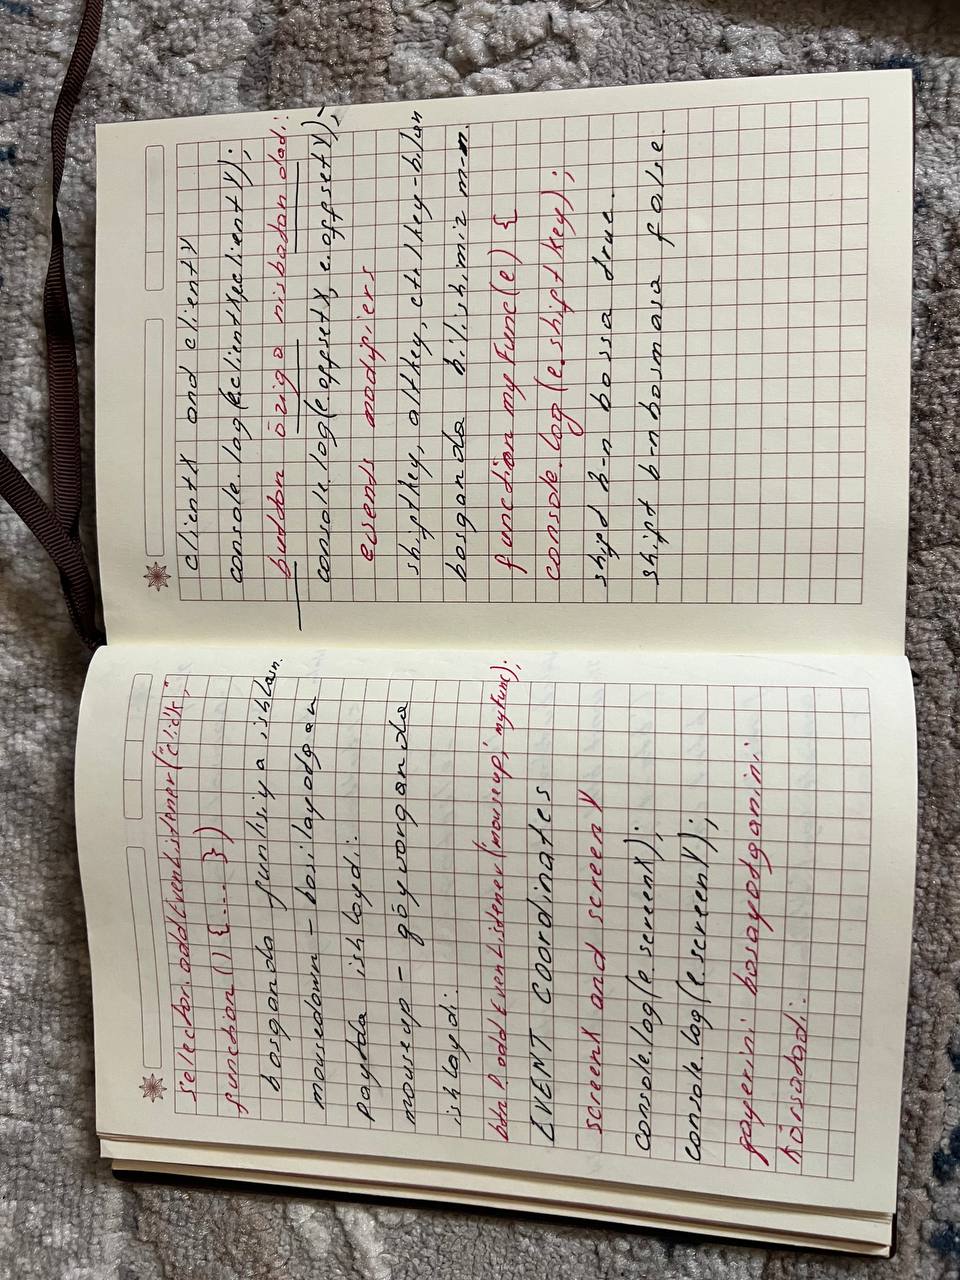 selector.addEvenListener("click",
function () { .... } )
bosganda funksiya ishlasin.
mousedown - bosilayodgan
paytda ishlaydi.
mouseup - qo'yvorganda
ishlaydi.
btn1.addEvenListener('mouseup', myFunc);
EVENT COORDINATES
screenX and screen Y
console.log(e.screenX);
console.log(e.screenY);
qayerini bosayodganini
körsadadi.
clientX and clientY
console.log(e.clientX, e.clientY);
button öziga nisbadan dadi:
console.log(e.offsetX, e.offsetY);
events modifiers
shiftkey, altkey, ctrlkey-bilan
bosganda bilishimiz m-n.
function myfunc(e) {
console.log(e.shiftkey);
shift b-n bossa true.
shift b-n bosmasa false.